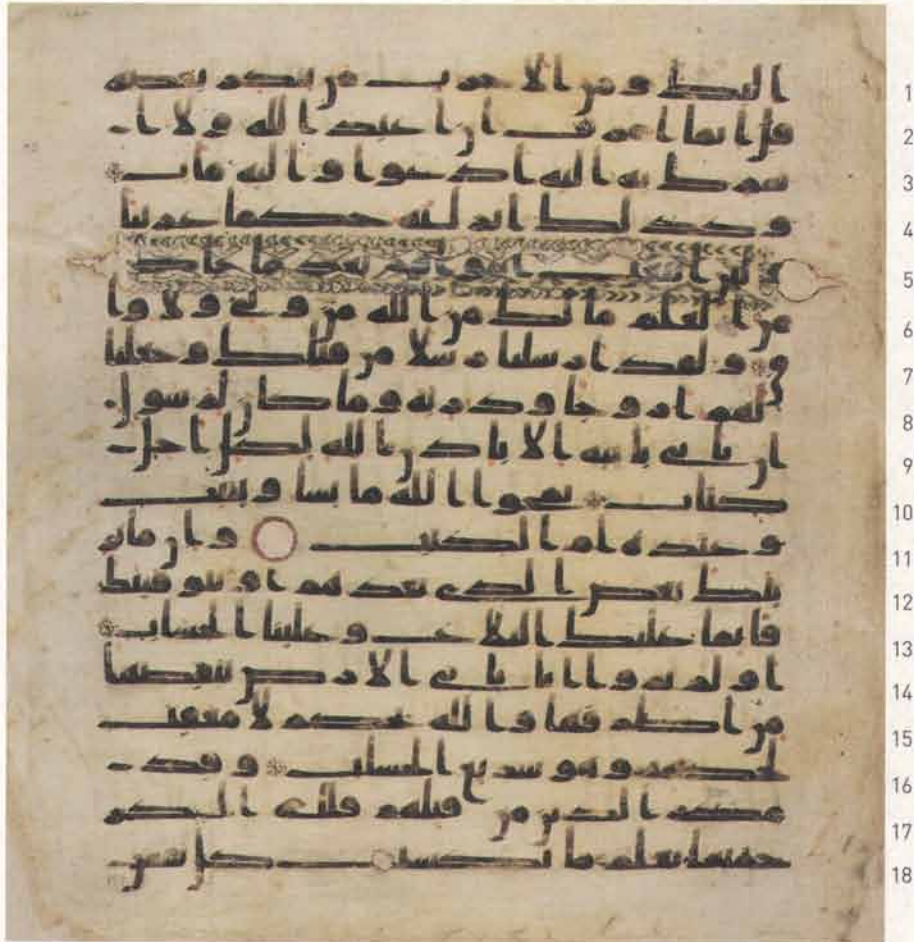 اليك ومن الاحزب من ينكر بعضه 1
قل انما امرت ان اعبد الله ولا ا 2
شرك به اليه ادعوا واليه ماب 3
وكذلك انزلنه حكما عربيا 4
ولئن اتبعت اهواهم بعد ما جاك 5
من العلم ما لك من الله من ولي ولا وا 6
ق ولقد ارسلنا رسلا من قبلك وجعلنا 7
لهم ازوجا وذرية وما كان لرسول 8
ان ياتي باية الا باذن الله لكل اجل 9
كتاب يمحوا الله ما يشا ويثبت 10
وعنده ام الكتب وان ما نر 11
ينك بعض الذي نعدهم او نتوفينك 12
فانما عليك البلاغ وعلينا الحساب 13
اولم يروا انا ناتي الارض ننقصها 14
من اطرفها والله يحكم لا معقب 15
لحكمه وهو سريع الحساب وقد 16
مكر الذين من قبلهم فلله المكر 17
جميعا يعلم ما تكسب كل نفس 18